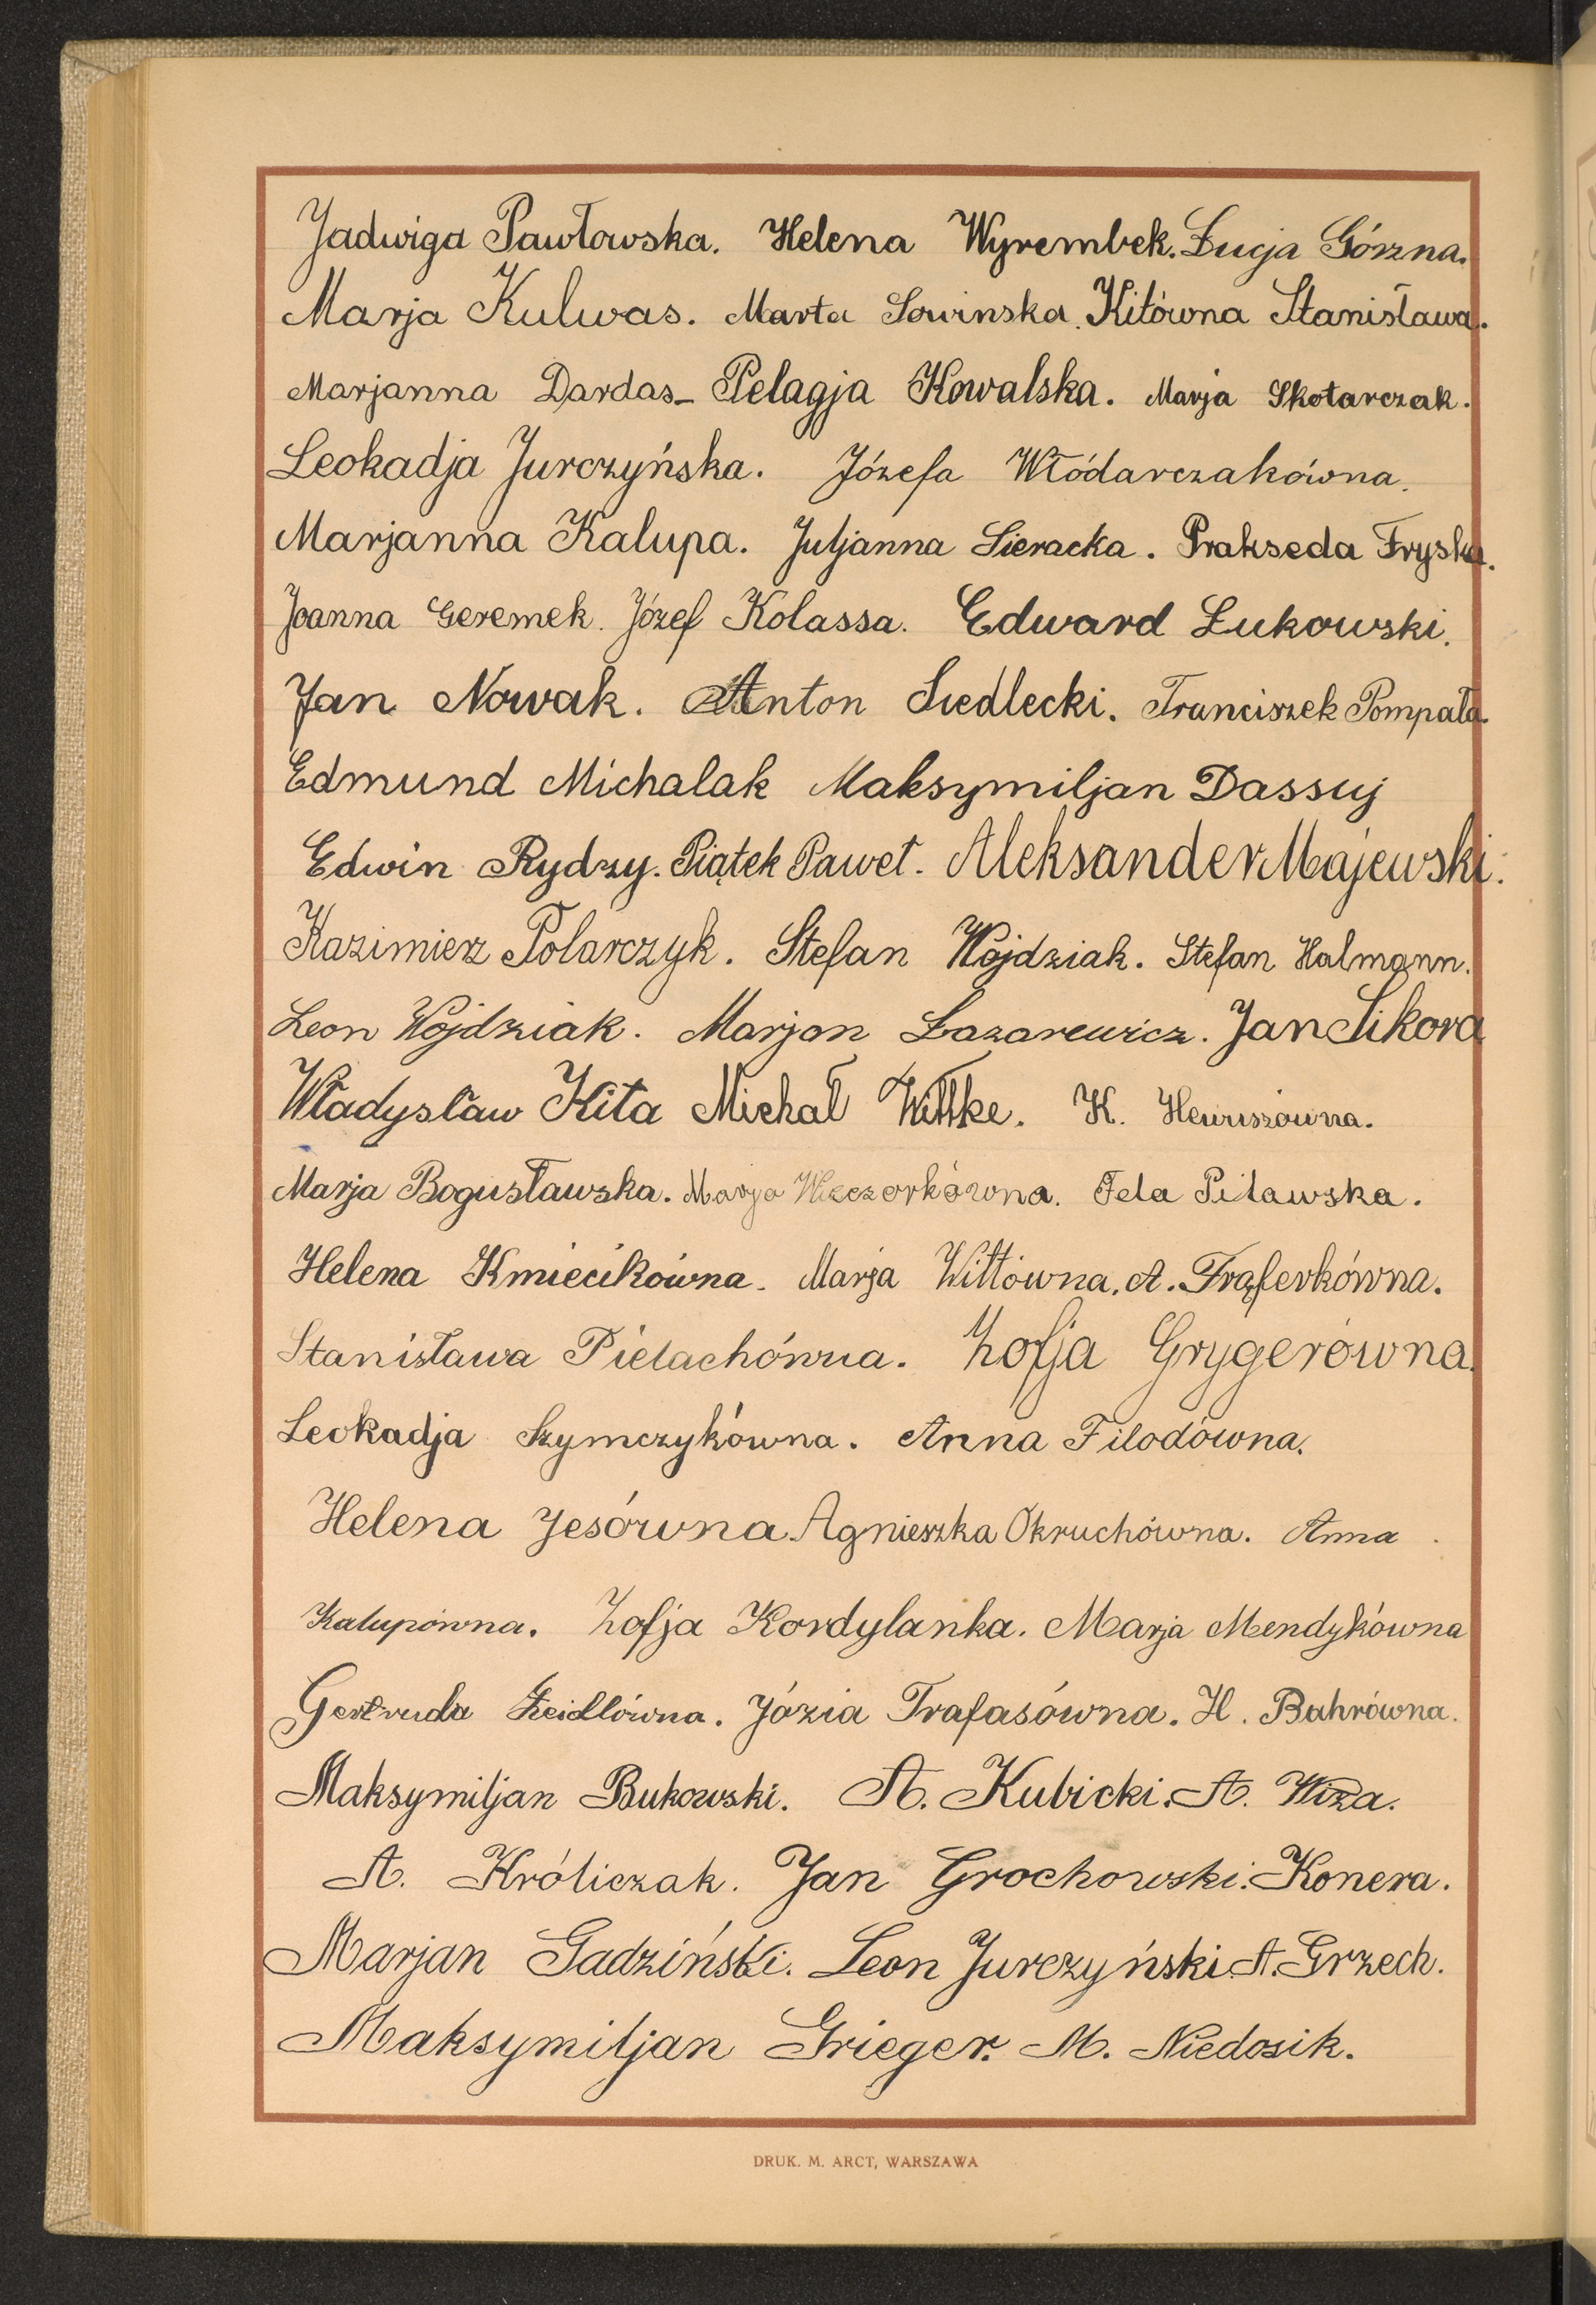 Jadwiga Pawłowska. Helena Wyrembek. Łucja Górzna.
Marja Kulwas. Marta Sowinska. Kitówna Stanisława.
Marjanna Dardas- Pelagja Kowalska. Marja Skotarczak.
Leokadja Jurczyńska. Józefa Włódarczakówna.
Marjanna Kalupa. Juljanna Sieracka. Prakseda Fryska.
Joanna Geremek. Józef Kolassa. Edward Łukowski.
Jan Nowak. Anton Siedlecki. Franciszek Pompała
Edmund Michalak Maksymiljan Dassuj
Edwin Rydzy. Piątek Paweł. Aleksander Majewski.
Kazimierz Polarczyk. Stefan Wojdziak. Stefan Halmann.
Leon Wojdziak. Marjan Łazarewicz. Jan Sikora
Władysław Kita Michał Wittke. K.
Marja Bogusławska. Marja Wieczorkówna. Fela Piławska.
Helena Kmiecikówna. Marja Wittówna. A. Frąferkówna.
Stanisława Pielachówna. Zofja Grygerówna.
Leokadja Szymczykówna. Anna Filodówna.
Helena Jesówna. Agnieszka Okruchówna. Anna
Kalupówna. Zofja Kordylanka. Marja Mendykówna
Gertruda Zeidlówna. Józia Trafasówna. H. Bahrówna.
Maksymiljan Bukowski. A. Kubicki. A. Wiza.
A. Króliczak. Jan Grochowski. Konera.
Marjan Gadziński. Leon Jurczyński A. Grzech.
Maksymiljan Grieger. M. Niedosik.
DRUK. M. ARCT, WARSZAWA